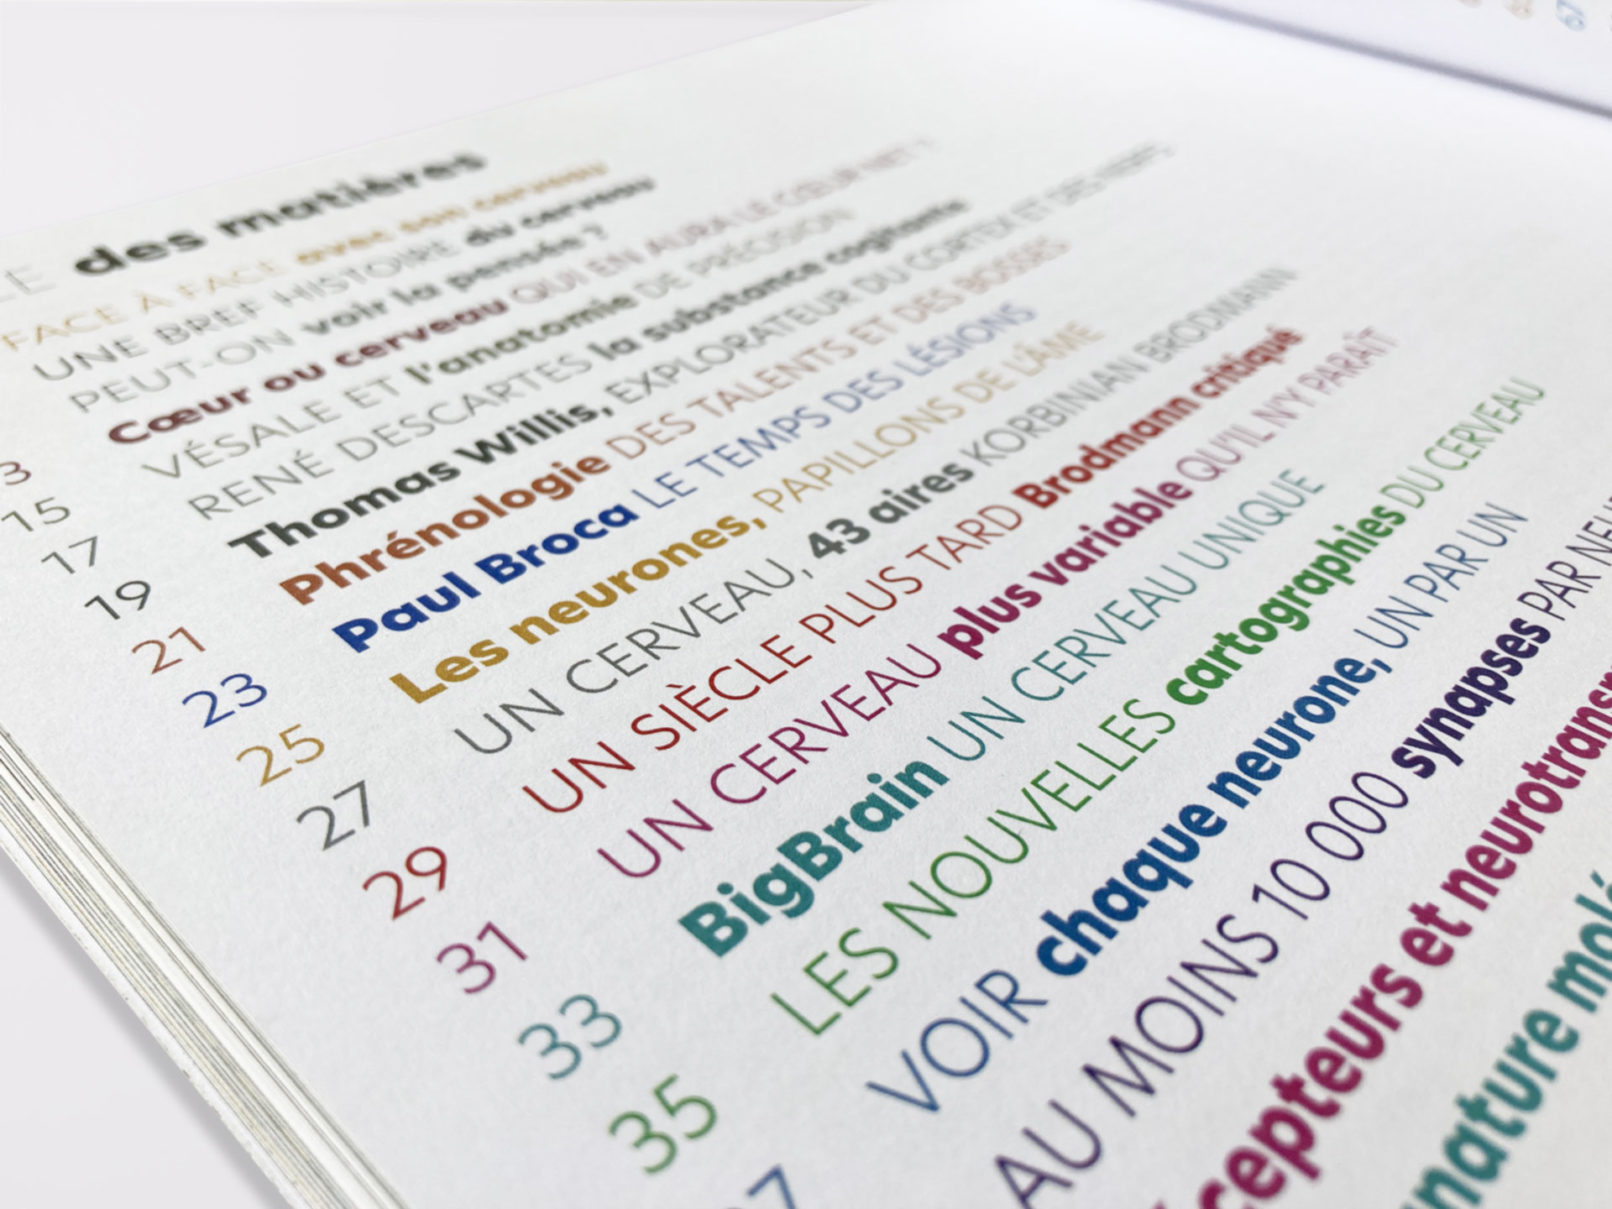 des matières
FACE À FACE avec son cerveau
UNE BREF HISTOIRE du cerveau
PEUT-ON voir la pensée ?
3 Cœur ou cerveau QUI EN AURA LE CŒUR NET ?
15 VÉSALE ET l'anatomie DE PRÉCISION
17 RENÉ DESCARTES la substance cogitante
19 Thomas Willis, EXPLORATEUR DU CORTEX ET DES NERFS
21 Phrénologie DES TALENTS ET DES BOSSES
23 Paul Broca LE TEMPS DES LÉSIONS
25 Les neurones, PAPILLONS DE L'ÂME
27 UN CERVEAU, 43 aires KORBINIAN BRODMANN
29 UN SIÈCLE PLUS TARD Brodmann critiqué
31 UN CERVEAU plus variable QU'IL N'Y PARAÎT
33 BigBrain UN CERVEAU UNIQUE
35 LES NOUVELLES cartographies DU CERVEAU
VOIR chaque neurone, UN PAR UN
AU MOINS 10 000 synapses PAR
et
nature